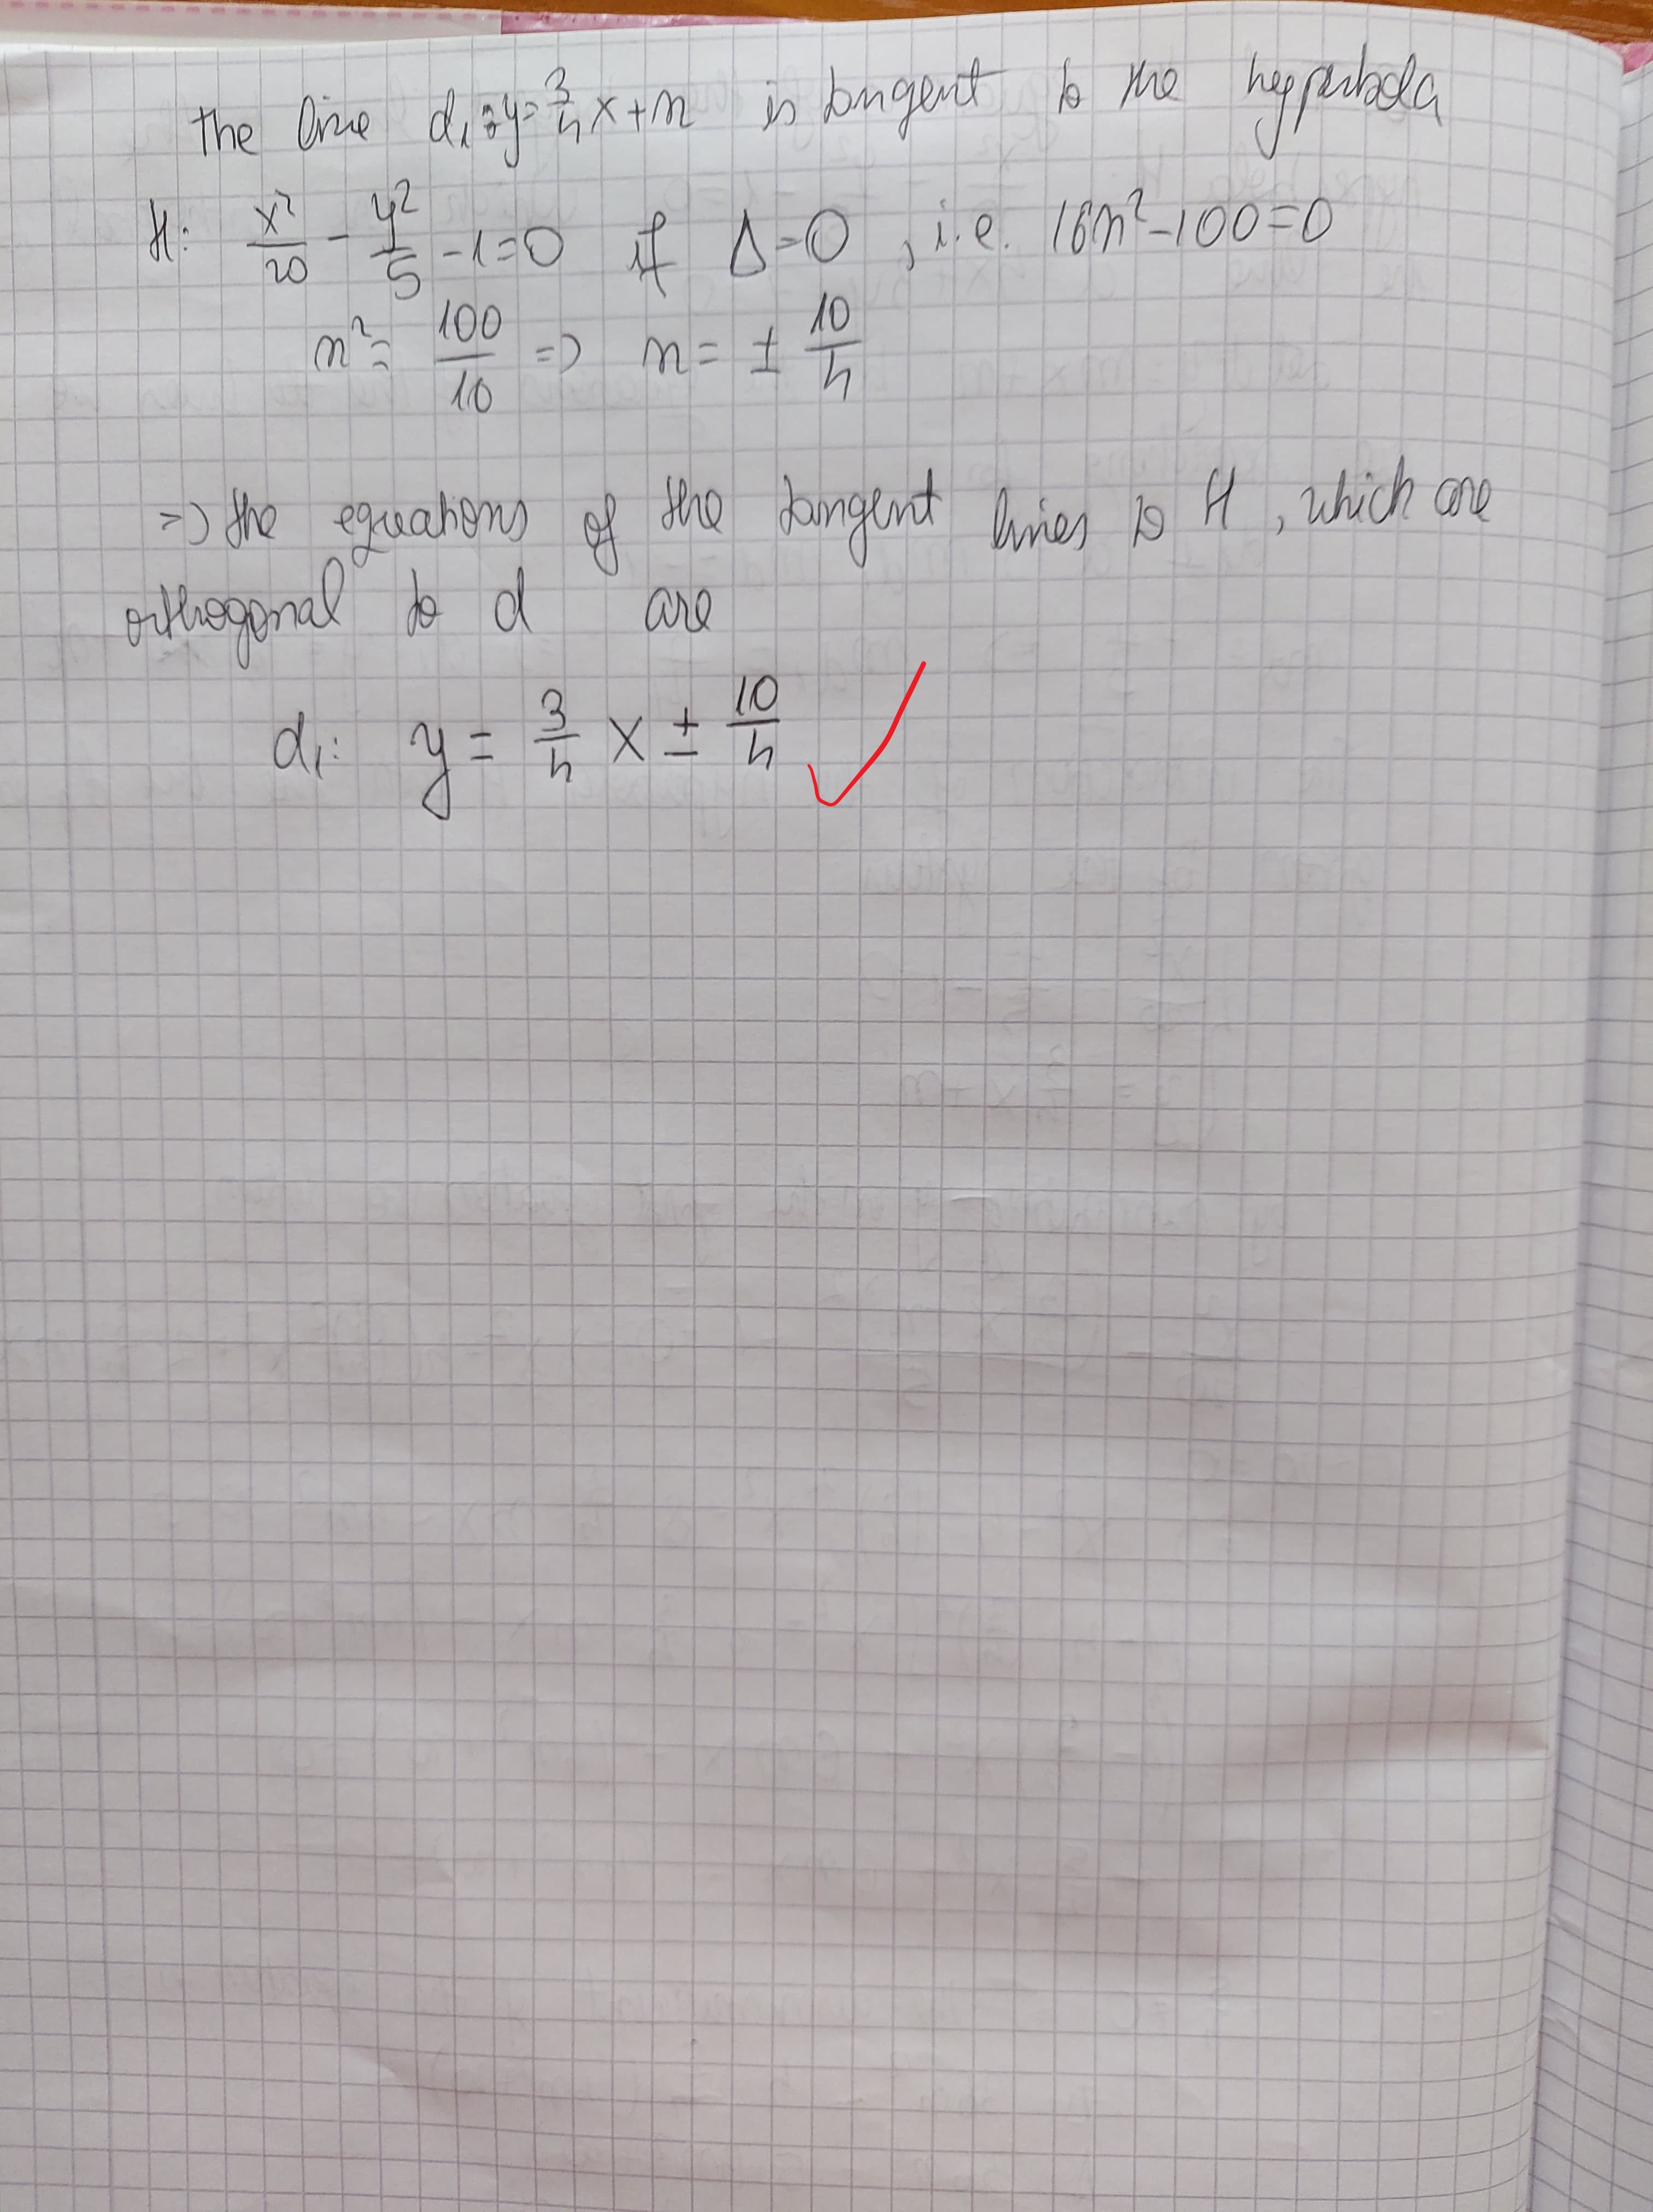 The line d₁: y = 3/4 x + n is tangent to the hyperbola
H: x²/20 - y²/5 - 1 = 0 if Δ = 0, i.e. 16n² - 100 = 0
n² = 100/10 => n = ± 10/4
=> the equations of the tangent lines to H, which are
orthogonal to d are
d₁: y = 3/4 x ± 10/4